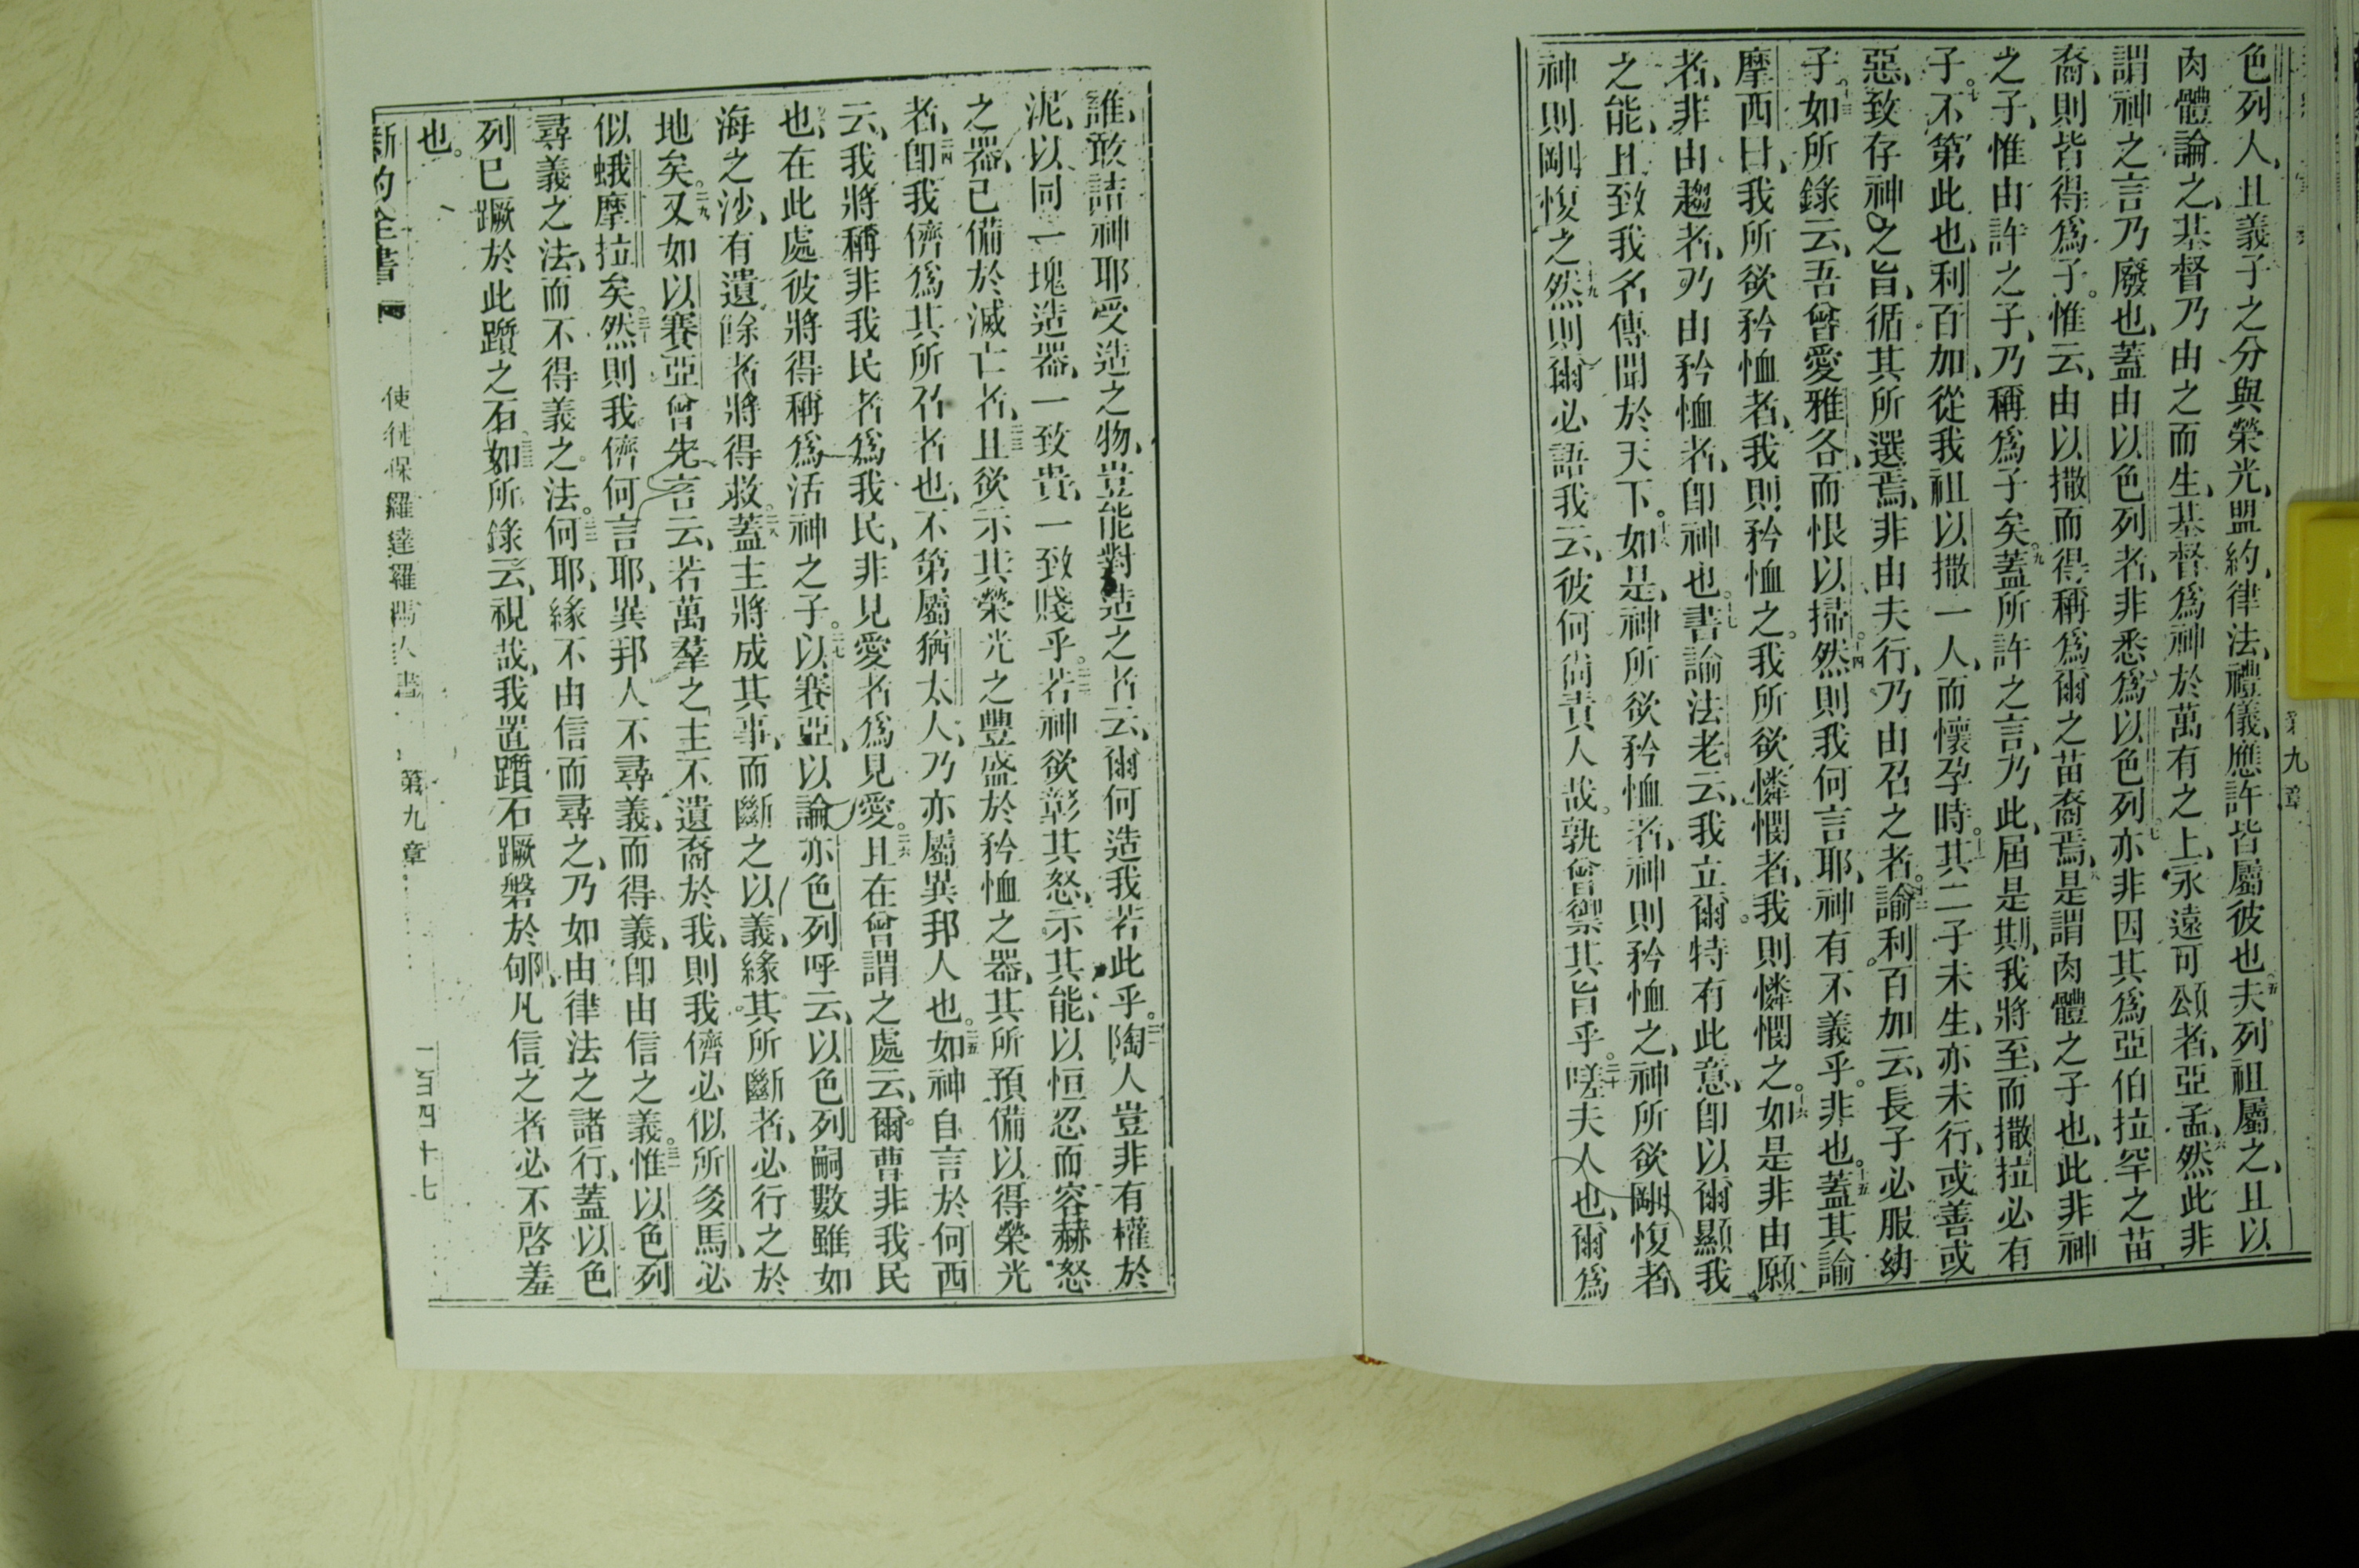 第九章
色列人、且義子之分與榮光、盟約、律法、禮儀、應許皆屬彼也。五夫列祖屬之、且以
肉體論之、基督乃由之而生、基督爲神於萬有之上、永遠可頌者、亞孟。六然此非
謂神之言乃廢也、蓋由以色列者、非悉爲以色列。七亦非因其爲亞伯拉罕之苗
裔、則皆得爲子。惟云、由以撒而得稱爲爾之苗裔焉。八是謂肉體之子也、此非神
之子、惟由許之子、乃稱爲子矣。九蓋所許之言、乃此、屆是期、我將至、而撒拉必有
子。十不第此也、利百加、從我祖以撒一人、而懷孕時。十一其二子未生、亦未行、或善或
惡、致存神之旨、循其所選焉、非由夫行、乃由召之者。十二諭利百加云、長子必服幼
子。十三如所錄云、吾曾愛雅各、而恨以掃。十四然則我何言耶、神有不義乎。非也。十五蓋其諭
摩西曰、我所欲矜恤者、我則矜恤之。我所欲憐憫者、我則憐憫之。十六如是非由願
者、非由趨者、乃由矜恤者、卽神也。十七書諭法老云、我立爾特有此意、卽以爾顯我
之能、且致我名傳聞於天下。十八如是、神所欲矜恤者、神則矜恤之、神所欲剛愎者、
神則剛愎之。十九然則爾必語我云、彼何尚責人哉。孰曾禦其旨乎。二十嗟夫人也、爾爲
誰、敢詰神耶、受造之物、豈能對造之者云、爾何造我若此乎。二一陶人豈非有權於
泥、以同一塊造器、一致貴、一致賤乎。二二若神欲彰其怒、示其能、以恒忍而容赫怒
之器、已備於滅亡者、二三且欲示其榮光之豐盛於矜恤之器、其所預備以得榮光
者、二四卽我儕爲其所召者也、不第屬猶太人、乃亦屬異邦人也。二五如神自言於何西
云、我將稱非我民者爲我民、非見愛者爲見愛。二六且在曾謂之處云、爾曹非我民
也、在此處彼將得稱爲活神之子。二七以賽亞、以論亦色列呼云、以色列嗣數雖如
海之沙、有遺餘者將得救。二八蓋主將成其事、而斷之以義、緣其所斷者、必行之於
地矣。二九又如以賽亞曾先言云、若萬羣之主不遺裔於我、則我儕必似所多馬、必
似蛾摩拉矣。三十然則我儕何言耶、異邦人不尋義、而得義、卽由信之義。三一惟以色列
尋義之法、而不得義之法。三二何耶、緣不由信而尋之、乃如由律法之諸行、蓋以色
列已蹶於此躓之石。三三如所錄云、視哉、我置躓石蹶磐於郇、凡信之者必不啓羞
也。
新約全書 使徒保羅達羅馬人書 第九章 一百四十七